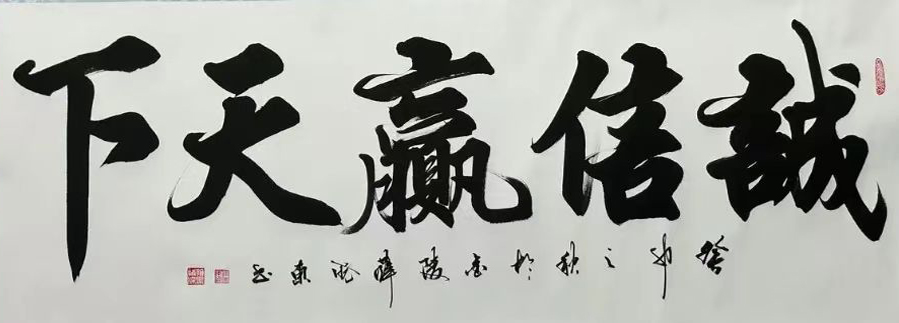 誠信贏天下
癸卯之秋於金陵薛曉東书